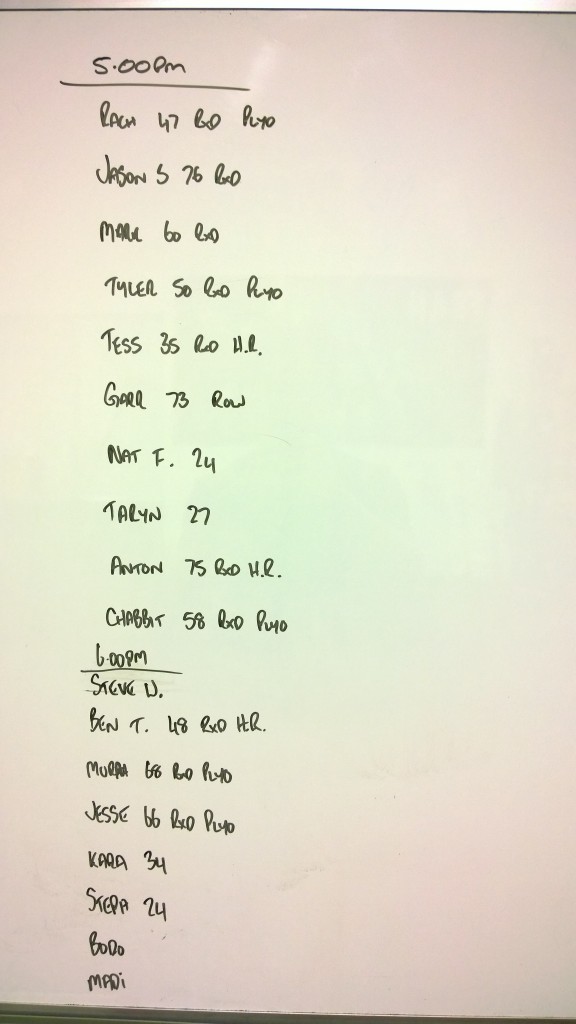 5.00PM
RACH 47 RXD PLYO
JASON S 76 RXD
MARK 60 RXD
TYLER 50 RXD PLYO
TESS 35 RXD H.R.
GARR 73 ROW
NAT F. 24
TARYN 27
ANTON 75 RXD H.R.
CHABBIT 58 RXD PLYO
6.00PM
STEVE W.
BEN T. 48 RXD H.R.
68 RXD PLYO
JESSE 66 RXD PLYO
KARA 34
STEPH 24
BODO
MADi